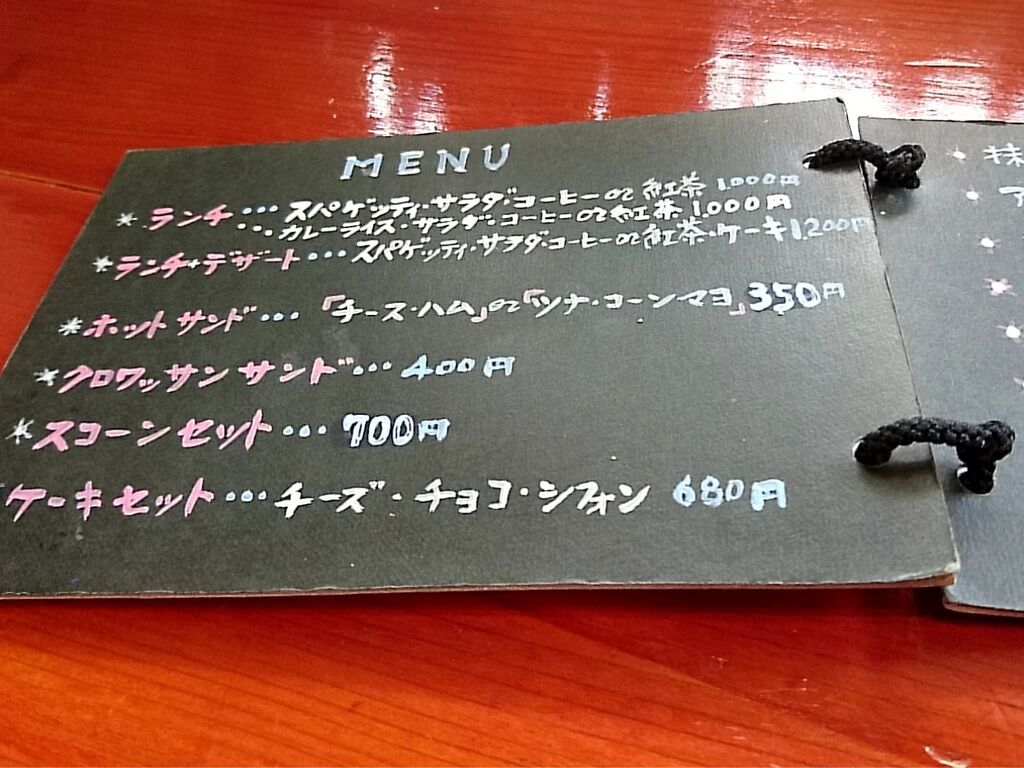 MENU
* ランチ ・・・ スパゲッティ・サラダ・コーヒーor紅茶 1.000円
・・・ カレーライス・サラダ・コーヒーor紅茶 1.000円
* ランチ+デザート ・・・ スパゲッティ・サラダ・コーヒーor紅茶・ケーキ 1.200円
* ホットサンド ・・・ 「チーズ・ハム」or「ツナ・コーンマヨ」350円
* クロワッサンサンド ・・・ 400円
* スコーンセット ・・・ 700円
ケーキセット ・・・ チーズ・チョコ・シフォン 680円
抹
ア